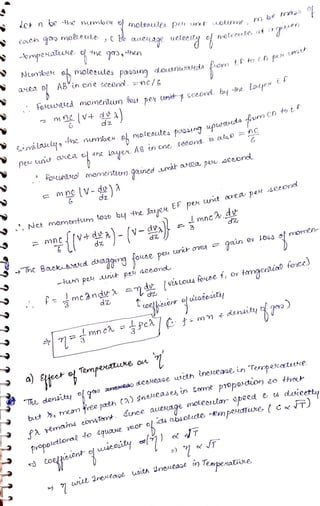 Let n be the number of molecules per unit volume, m be mass of
each gas molecule, c be average velocity of molecules at a given
temperature of the gas, then
Number of molecules passing downwards from EF to CD per unit
area of AB in one second = nc/6
∴ Forward momentum lost per unit second by the layer EF
= mnc/6 (v + dv/dz λ)
Similarly, the number of molecules passing upwards from CD to EF
per unit area of the layer AB in one second is also = nc/6
∴ Forward momentum gained unit area per second
= mnc/6 (v - dv/dz) λ
∴ Net momentum lost by the layer EF per unit area per second
= mnc/6 {(v + dv/dz λ) - (v - dv/dz λ)} = 1/3 mnc λ dv/dz
The Backward dragging force per unit area = gain or loss of momen-
-tum per unit per second
∴ f = 1/3 mc λ n dv/dz = η dv/dz (viscous force f, or tangential force)
coefficient of viscosity
⇒ η = 1/3 mnc λ = 1/3 ρcλ (∵ ρ = mn = density of gas)
a) Effect of Temperature on 'η'
The density of gas decrease with increase in Temperature
but λ, mean free path (λ) increases, in same proportion so that
ρλ remains constant. Since average molecular speed c is directly
proportional to square root of its absolute temperature (C ∝ √T)
⇒ coefficient of viscosity (η) ∝ √T
⇒ η ∝ √T
⇒ η will increase with increase in Temperature.